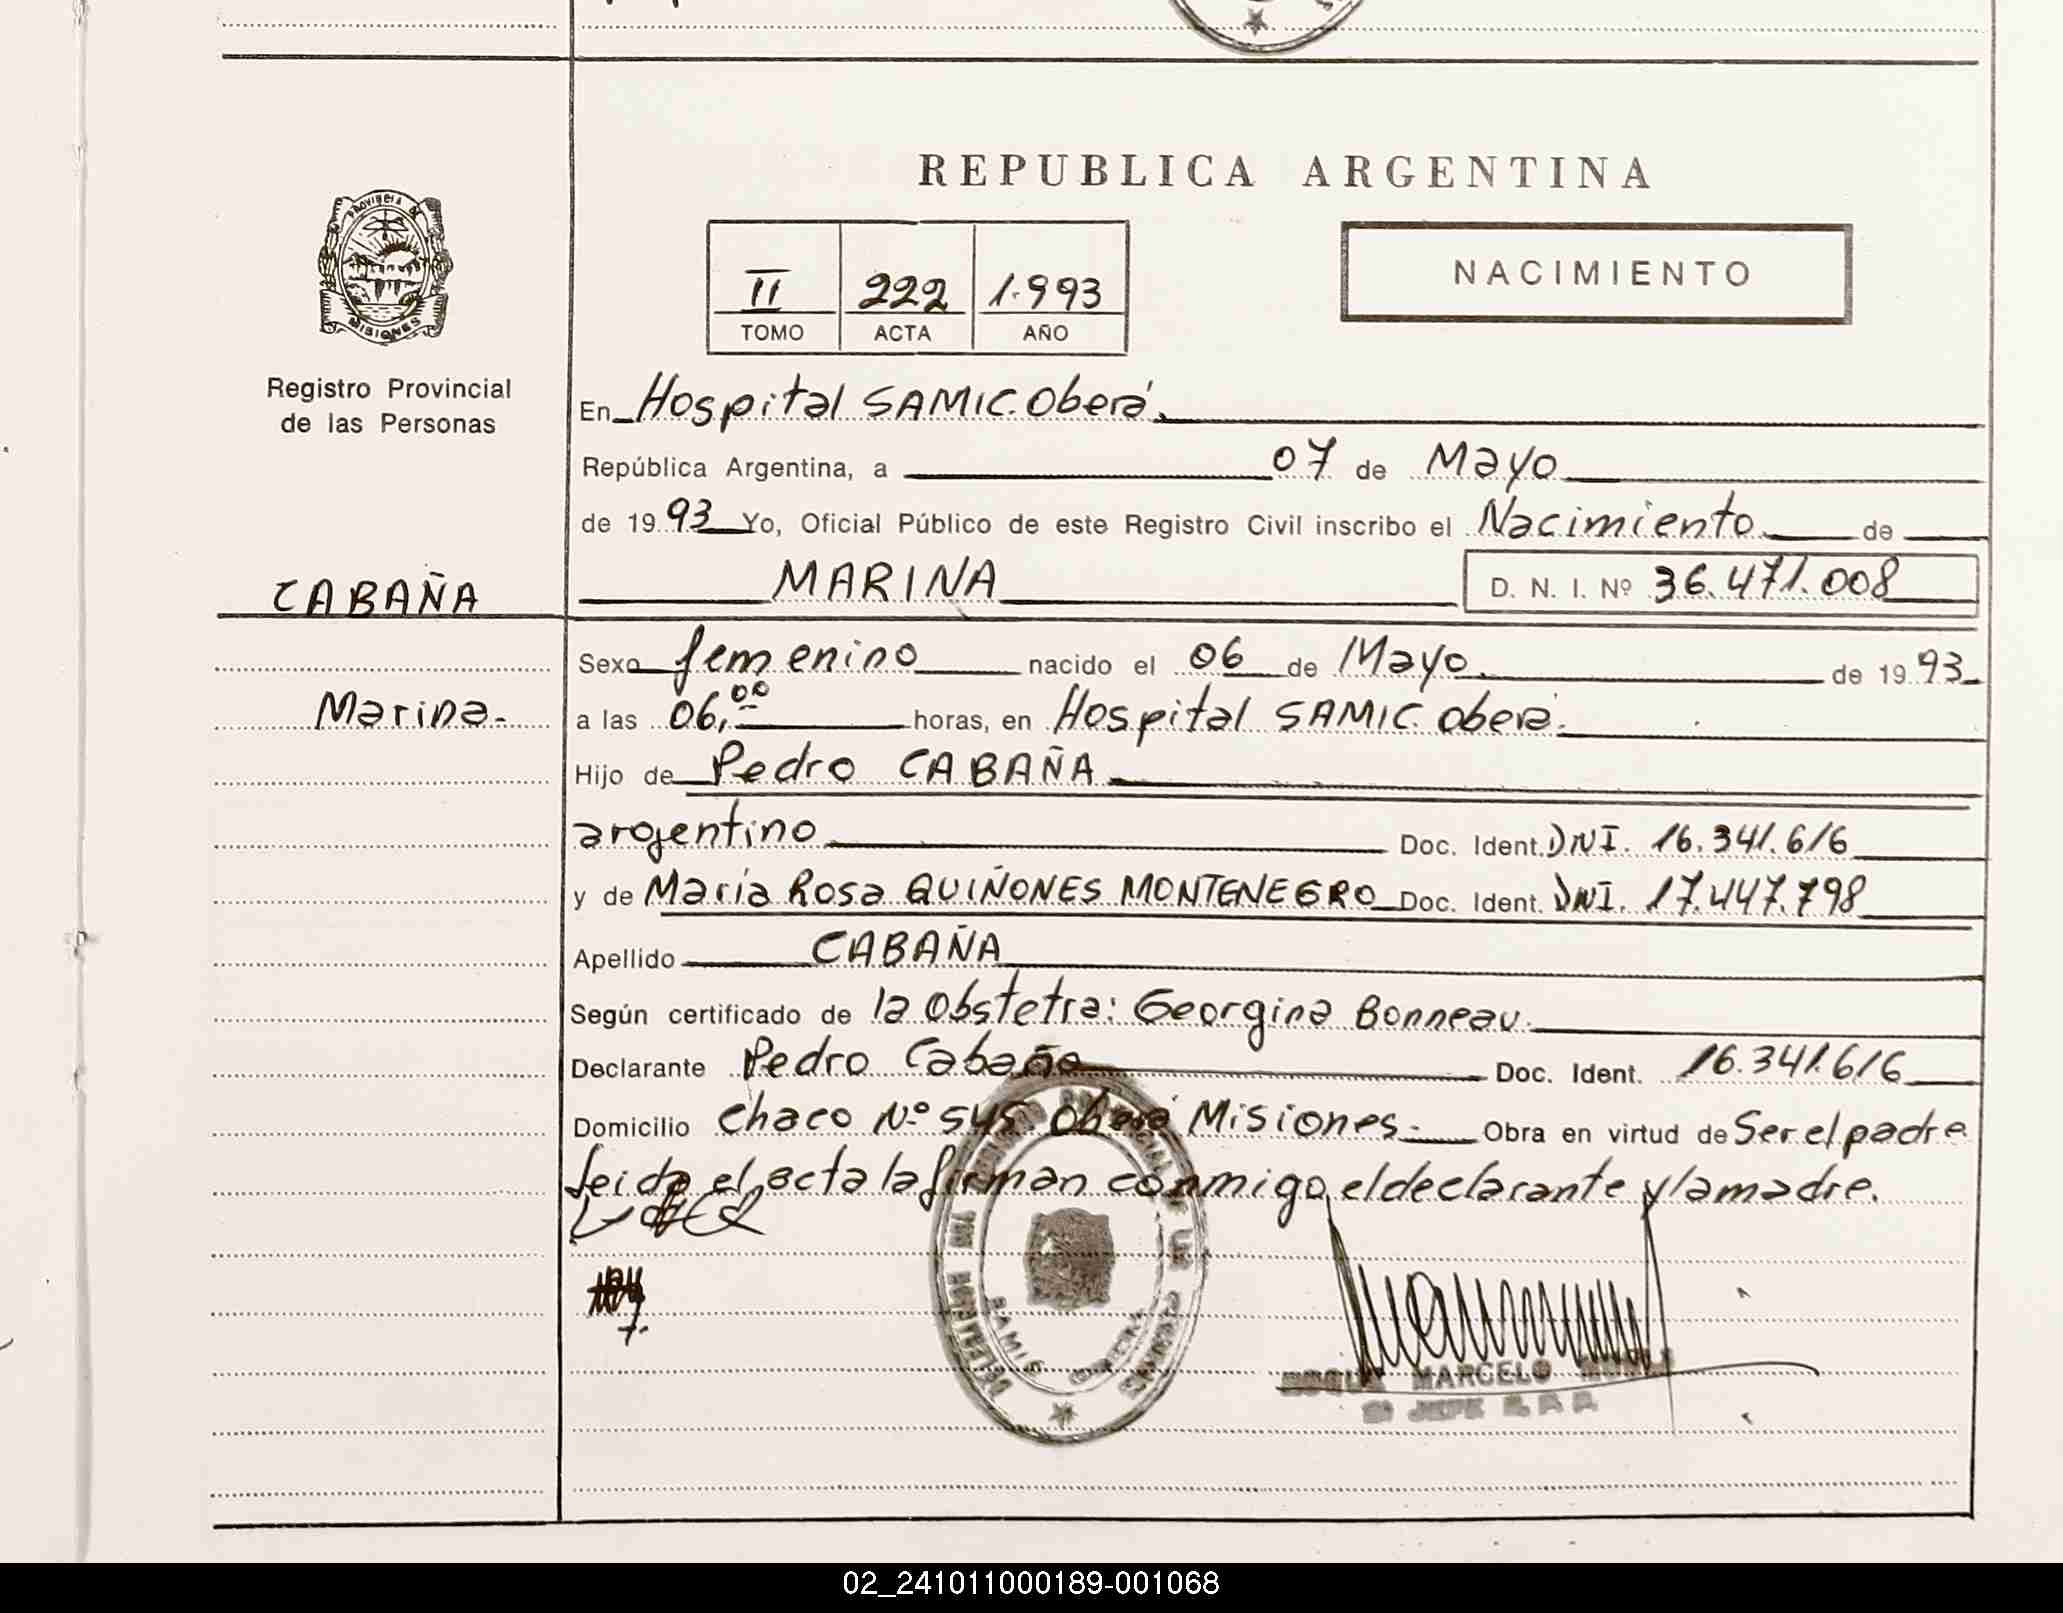 REPUBLICA ARGENTINA
PROVINCIA DE
MISIONES
Registro Provincial
de las Personas
II 222 1.993
TOMO ACTA AÑO
NACIMIENTO
En Hospital SAMIC. Oberá.
República Argentina, a 07 de Mayo
de 19 93 Yo, Oficial Público de este Registro Civil inscribo el Nacimiento de
CABAÑA
MARINA D. N. I. Nº 36.471.008
Sexo femenino nacido el 06 de Mayo de 19 93
Marina.
a las 06,00 horas, en Hospital SAMIC. Oberá.
Hijo de Pedro CABAÑA
argentino Doc. Ident. DNI. 16.341.616
y de María Rosa QUIÑONES MONTENEGRO Doc. Ident. DNI. 17.447.798
Apellido CABAÑA
Según certificado de la Obstetra: Georgina Bonneau.
Declarante Pedro Cabaña Doc. Ident. 16.341.616
Domicilio Chaco Nº 545 Oberá Misiones. Obra en virtud de Ser el padre
Leida el acta la firman conmigo, el declarante y la madre.
MARCELO
02_241011000189-001068